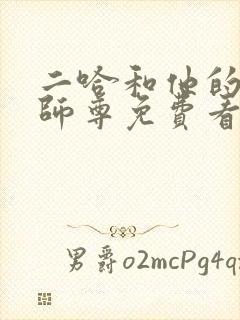 二哈和他的
師尊免費看
男爵o2mcPg4q